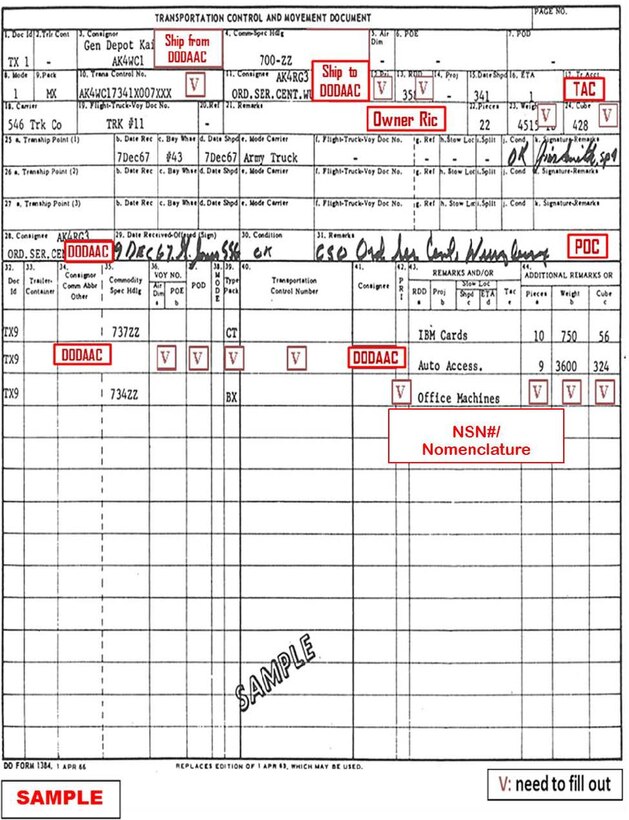 TRANSPORTATION CONTROL AND MOVEMENT DOCUMENT
PAGE NO.
1. Doc Id 2.Trlr Cont 3. Consignor 4. Comm-Spec Hdlg 5. Air Dim 6. POE 7. POD
Gen Depot Kai
TX 1 - AK4WC1 700-ZZ - - -
Ship from DODAAC
8. Mode 9.Pack 10. Trans Control No. 11. Consignee AK4RG3 13. RDD 14. Proj 15.Date Shpd 16. ETA 17. Tr Acct
1 MX AK4WC17341X007XXX V ORD.SER.CENT.WU V V - 341 1
Ship to DODAAC
TAC
18. Carrier 19. Flight-Truck-Voy Doc No. 20.Ref 21. Remarks 22.Pieces 24. Cube
546 Trk Co TRK #11 - 22 4515 V 428 V
Owner Ric
25 a. Tranship Point (1) b. Date Rec c. Bay Whse d. Date Shpd e. Mode Carrier f. Flight-Truck-Voy Doc No. g. Ref h. Stow Loc i.Split j. Cond k. Signature-Remarks
7Dec67 #43 7Dec67 Army Truck - - - - OK
26 a. Tranship Point (2) b. Date Rec c. Bay Whse d. Date Shpd e. Mode Carrier f. Flight-Truck-Voy Doc No. g. Ref h. Stow Loc i.Split j. Cond k. Signature-Remarks
27 a. Tranship Point (3) b. Date Rec c. Bay Whse d. Date Shpd e. Mode Carrier f. Flight-Truck-Voy Doc No. g. Ref h. Stow Loc i.Split j. Cond k. Signature-Remarks
28. Consignee AK4RG3 29. Date Received-Offered (Sign) 30. Condition 31. Remarks
ORD.SER.CEN DODAAC 9 DEC 67 OK CSO Ord Ser Cent, POC
32. Doc Id 33. Trailer-Container 34. Consignor Comm Abbr Other 35. Commodity Spec Hdlg 36. VOY NO. Air Dim a POE b 37. POD 38. MODE 39. Type Pack 40. Transportation Control Number 41. Consignee 42. PRI 43. REMARKS AND/OR RDD a Proj b Stow Loc Shpd c ETA d Tac e 44. ADDITIONAL REMARKS OR Pieces a Weight b Cube c
TX9 737ZZ CT IBM Cards 10 750 56
TX9 DODAAC V V V V DODAAC Auto Access. 9 3600 324
TX9 734ZZ BX V Office Machines V V V
NSN#/
Nomenclature
SAMPLE
DD FORM 1384, 1 APR 66 REPLACES EDITION OF 1 APR 63, WHICH MAY BE USED.
SAMPLE
V: need to fill out